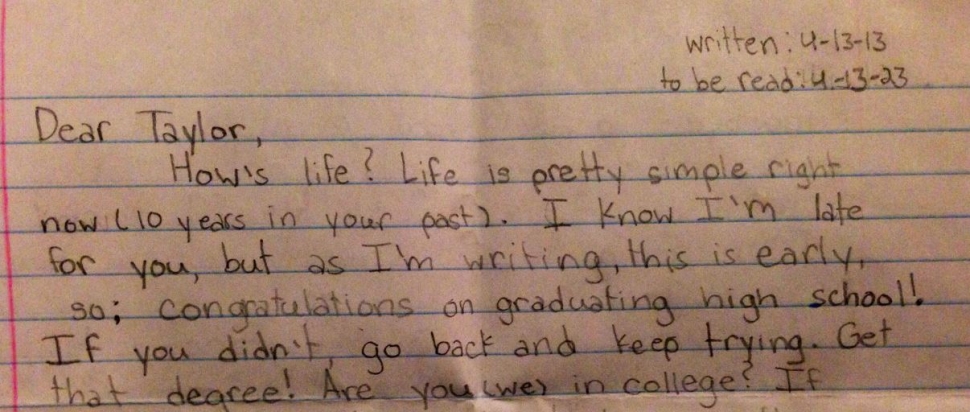 written: 4-13-13
to be read: 4-13-23
Dear Taylor,
How's life? Life is pretty simple right
now (10 years in your past). I know I'm late
for you, but as I'm writing, this is early,
so; congratulations on graduating high school!
If you didn't, go back and keep trying. Get
that degree! Are you (we) in college? If